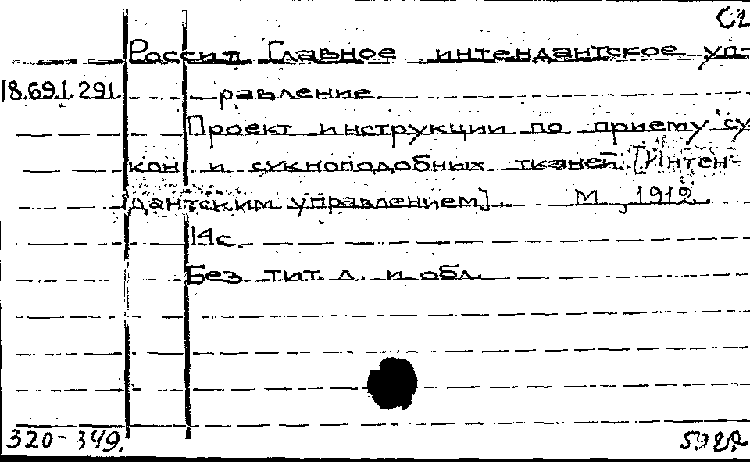 Россия. Главное интендантское уп-
18.69.1.291. равление.
Проект инструкции по приему су
кон и сукноподобных тканей [Интен-
дантским управлением]. М., 1912.
14с.
Без тит. л. и обл.
320-349.